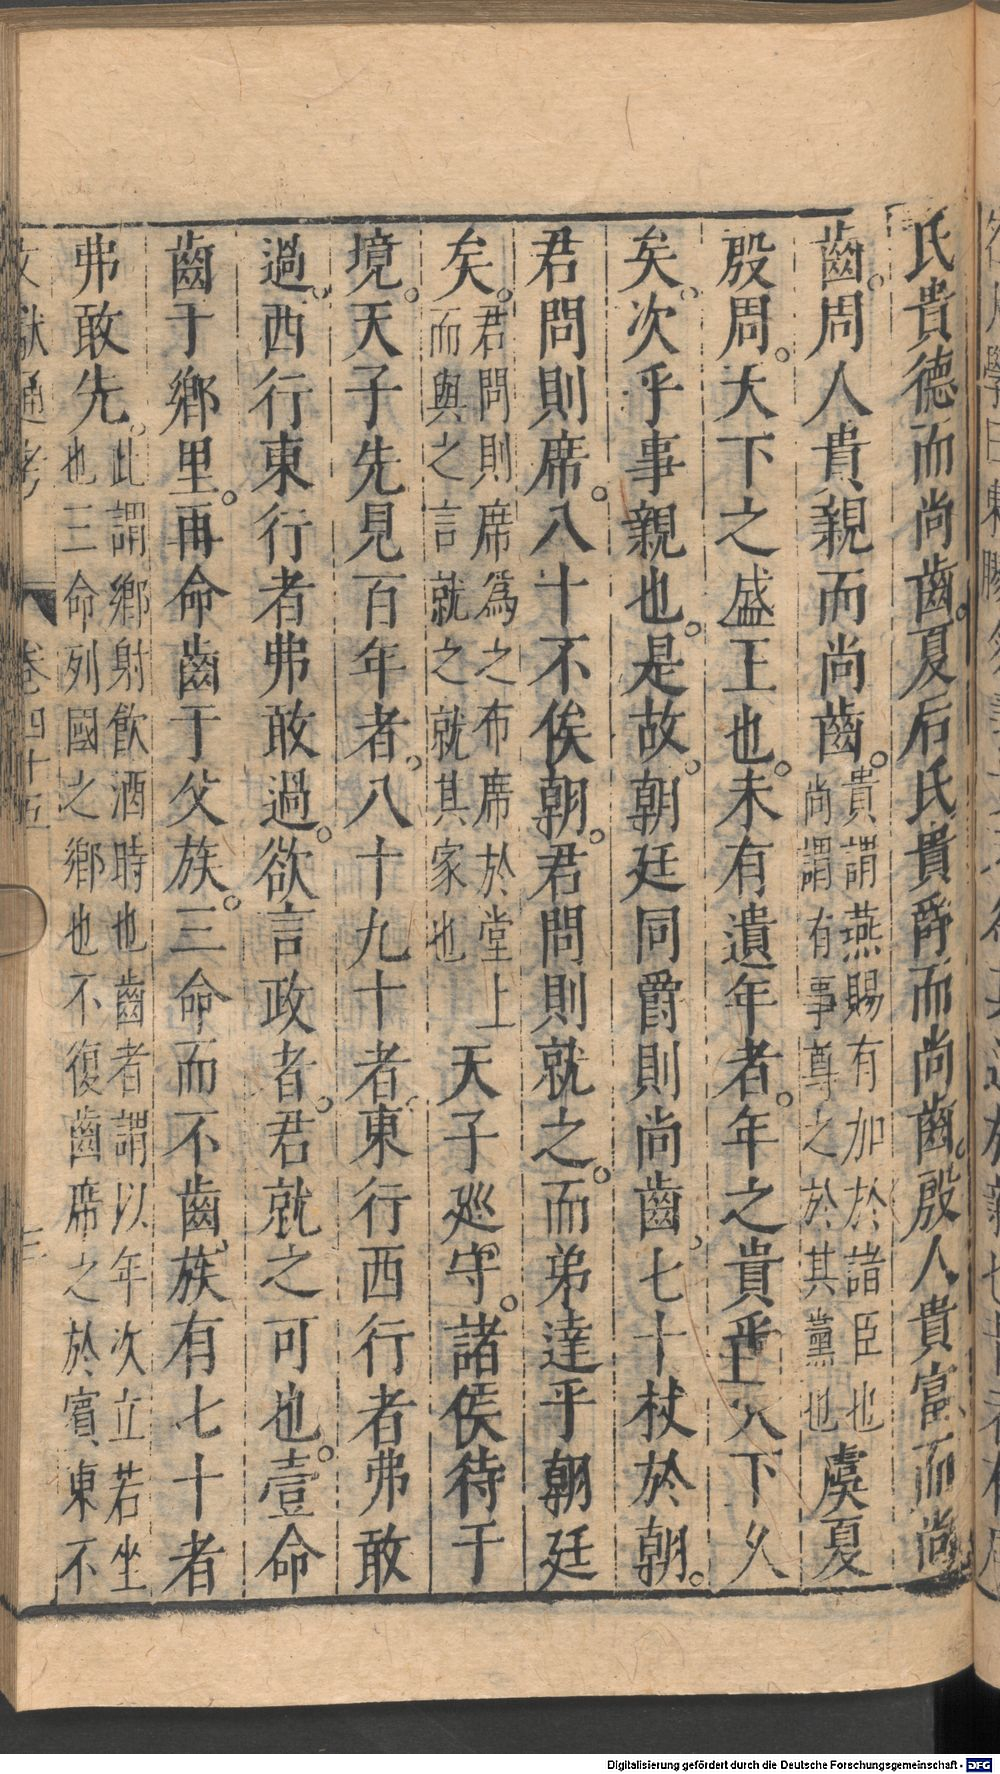 氏貴德而尚齒。夏后氏貴爵而尚齒。殷人貴富而尚
齒。周人貴親而尚齒。貴謂燕賜有加於諸臣也尚謂有事尊之於其黨也虞夏
殷周。天下之盛王也。未有遺年者。年之貴乎天下久
矣。次乎事親也。是故。朝廷同爵則尚齒。七十杖於朝。
君問則席。八十不俟朝。君問則就之。而弟達乎朝廷
矣。君問則席為之布席於堂上而與之言就之就其家也天子巡守。諸侯待于
境。天子先見百年者。八十九十者東行西行者弗敢
過。西行東行者弗敢過。欲言政者。君就之可也。壹命
齒于鄉里。再命齒于父族。三命而不齒。族有七十者
弗敢先。此謂鄉射飲酒時也齒者謂以年次立若坐也三命列國之鄉也不復齒席之於賓東不
文獻通考 卷四十五 三
Digitalisierung gefördert durch die Deutsche Forschungsgemeinschaft - DFG